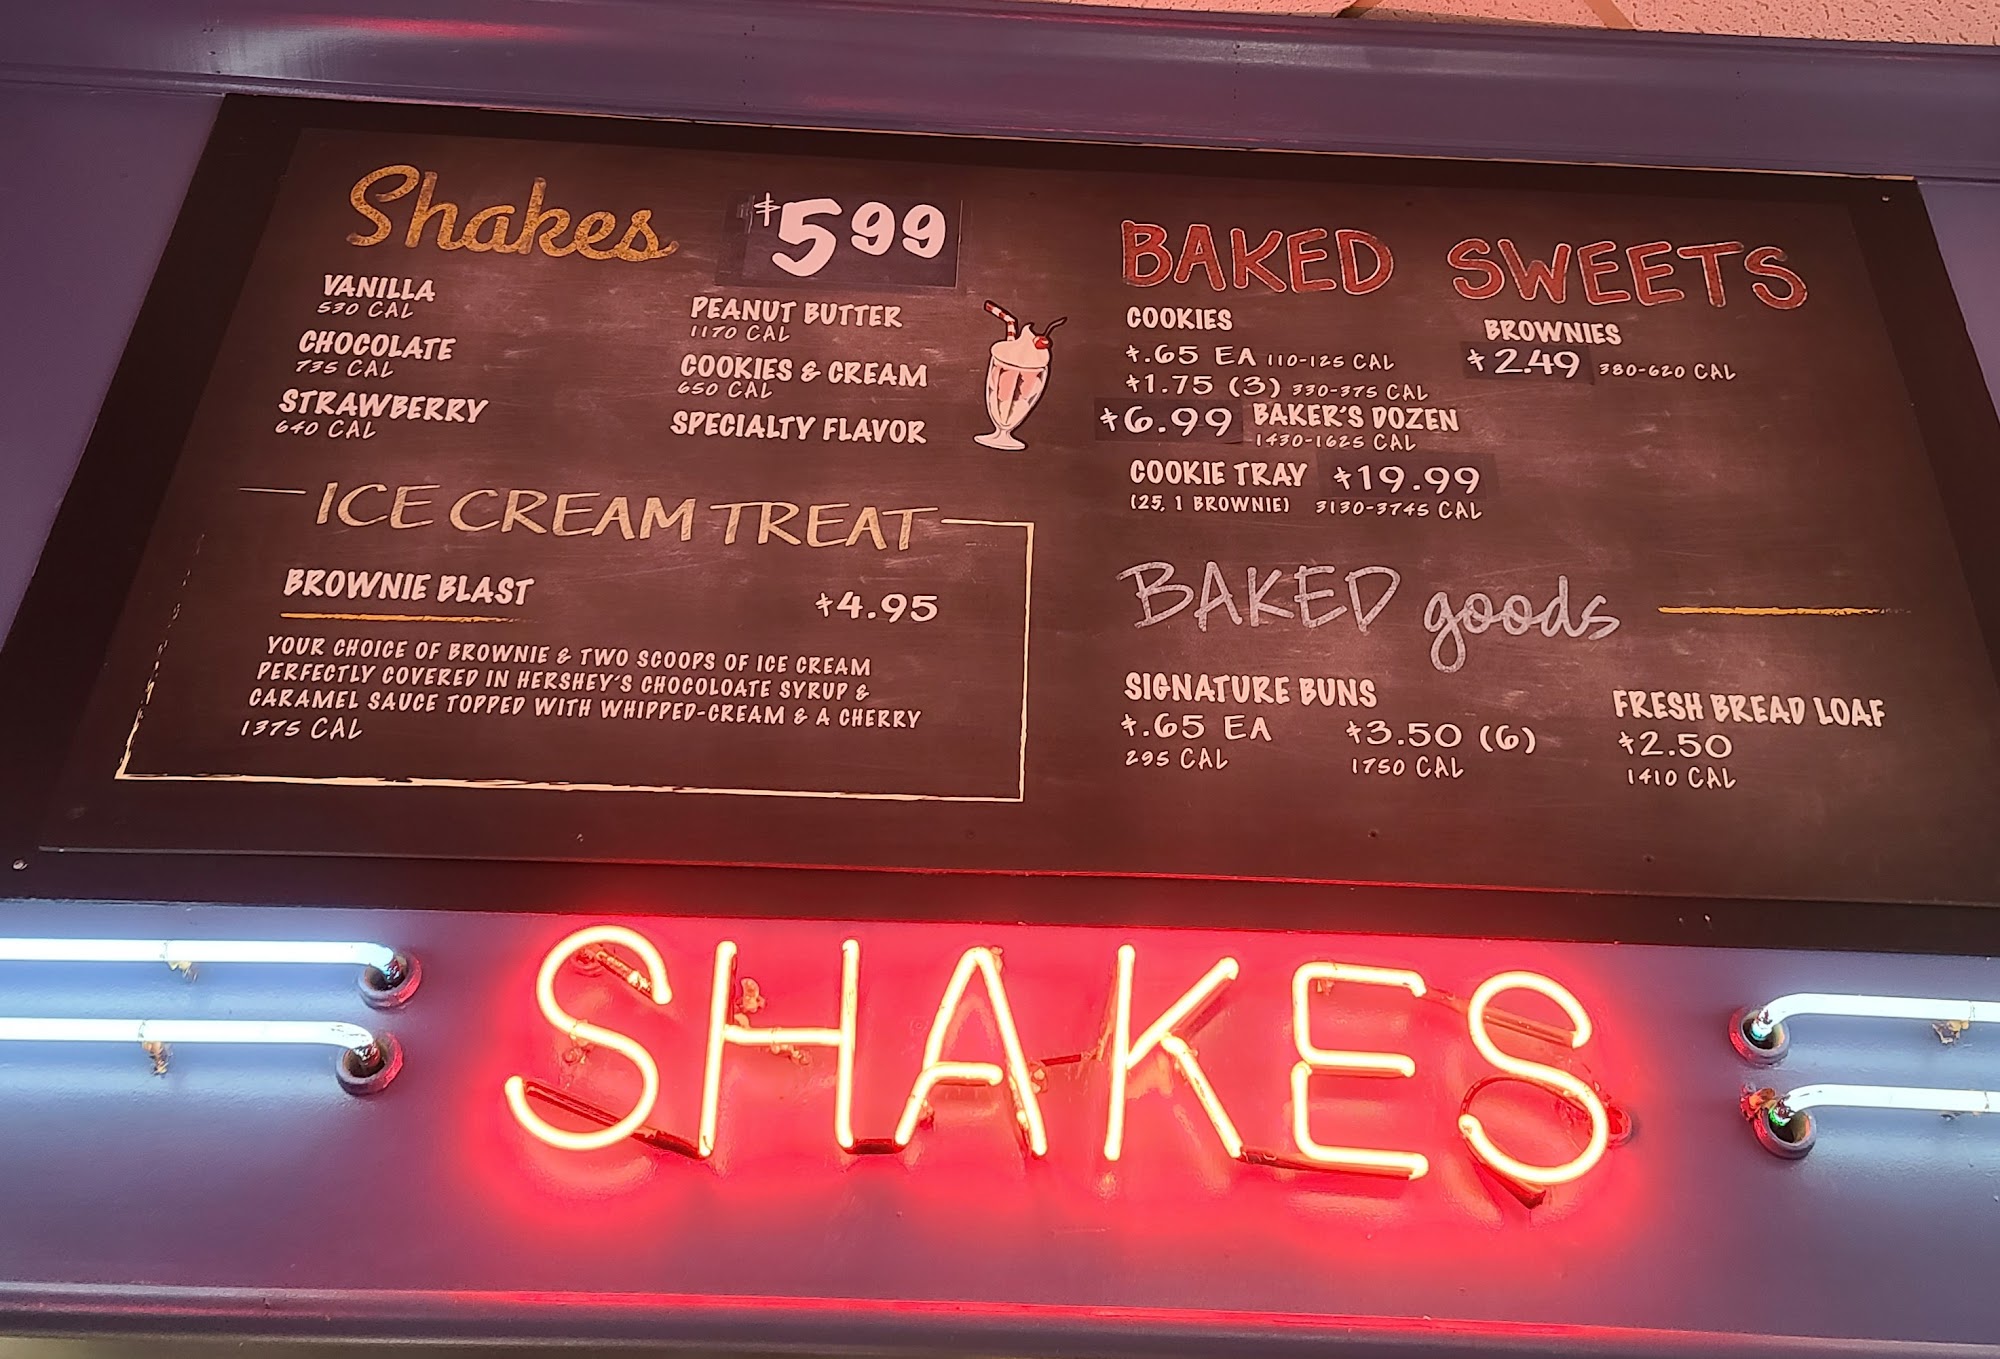 Shakes $5.99
VANILLA
530 CAL
CHOCOLATE
735 CAL
STRAWBERRY
640 CAL
PEANUT BUTTER
1170 CAL
COOKIES & CREAM
650 CAL
SPECIALTY FLAVOR
ICE CREAM TREAT
BROWNIE BLAST $4.95
YOUR CHOICE OF BROWNIE & TWO SCOOPS OF ICE CREAM
PERFECTLY COVERED IN HERSHEY'S CHOCOLOATE SYRUP &
CARAMEL SAUCE TOPPED WITH WHIPPED-CREAM & A CHERRY
1375 CAL
BAKED SWEETS
COOKIES
$.65 EA 110-125 CAL
$1.75 (3) 330-375 CAL
$6.99 BAKER'S DOZEN
1430-1625 CAL
COOKIE TRAY $19.99
(25, 1 BROWNIE) 3130-3745 CAL
BROWNIES
$2.49 380-620 CAL
BAKED goods
SIGNATURE BUNS
$.65 EA $3.50 (6)
295 CAL 1750 CAL
FRESH BREAD LOAF
$2.50
1410 CAL
SHAKES